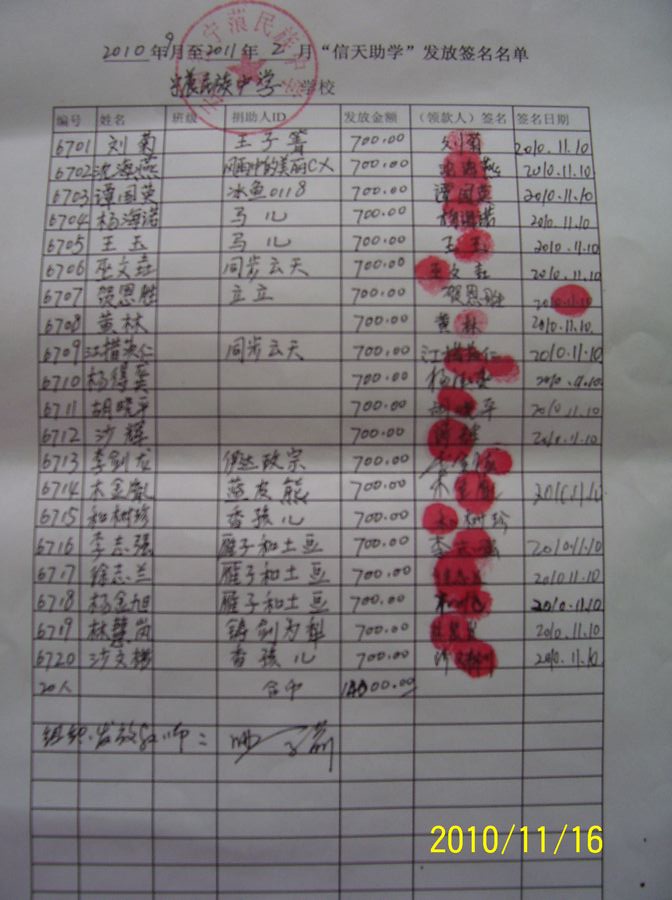 2010年9月至2011年2月“信天助学”发放签名名单
宁蒗民族中学 学校
编号 姓名 班级 捐助人ID 发放金额 (领款人)签名 签名日期
6701 刘菊 王子箐 700.00 刘菊 2010.11.10
6702 沈海燕 700.00 沈海燕 2010.11.10
6703 谭国英 冰鱼0118 700.00 谭国英 2010.11.10
6704 杨海诺 马儿 700.00 杨海诺 2010.11.10
6705 王玉 马儿 700.00 王玉 2010.11.10
6706 巫文垚 同步云天 700.00 巫文垚 2010.11.10
6707 贺恩胜 立立 700.00 贺恩胜 2010.11.10
6708 黄林 700.00 黄林 2010.11.10
6709 江措英仁 同步云天 700.00 江措英仁 2010.11.10
6710 杨得英 700.00 2010.11.10
6711 胡晓平 700.00 胡晓平 2010.11.10
6712 沙辉 700.00 2010.11.10
6713 李剑龙 伊达政宗 700.00
6714 木金胤 700.00 2010.11.10
6715 和树珍 香孩儿 700.00 和树珍
6716 李志强 雁子和土豆 700.00 李志强 2010.11.10
6717 徐志兰 雁子和土豆 700.00 2010.11.10
6718 杨金旭 雁子和土豆 700.00 2010.11.10
6719 林慧岗 铸剑为犁 700.00 2010.11.10
6720 沙文 香孩儿 700.00 2010.11.10
20人 合币 14000.00
组织·发放老师：
2010/11/16